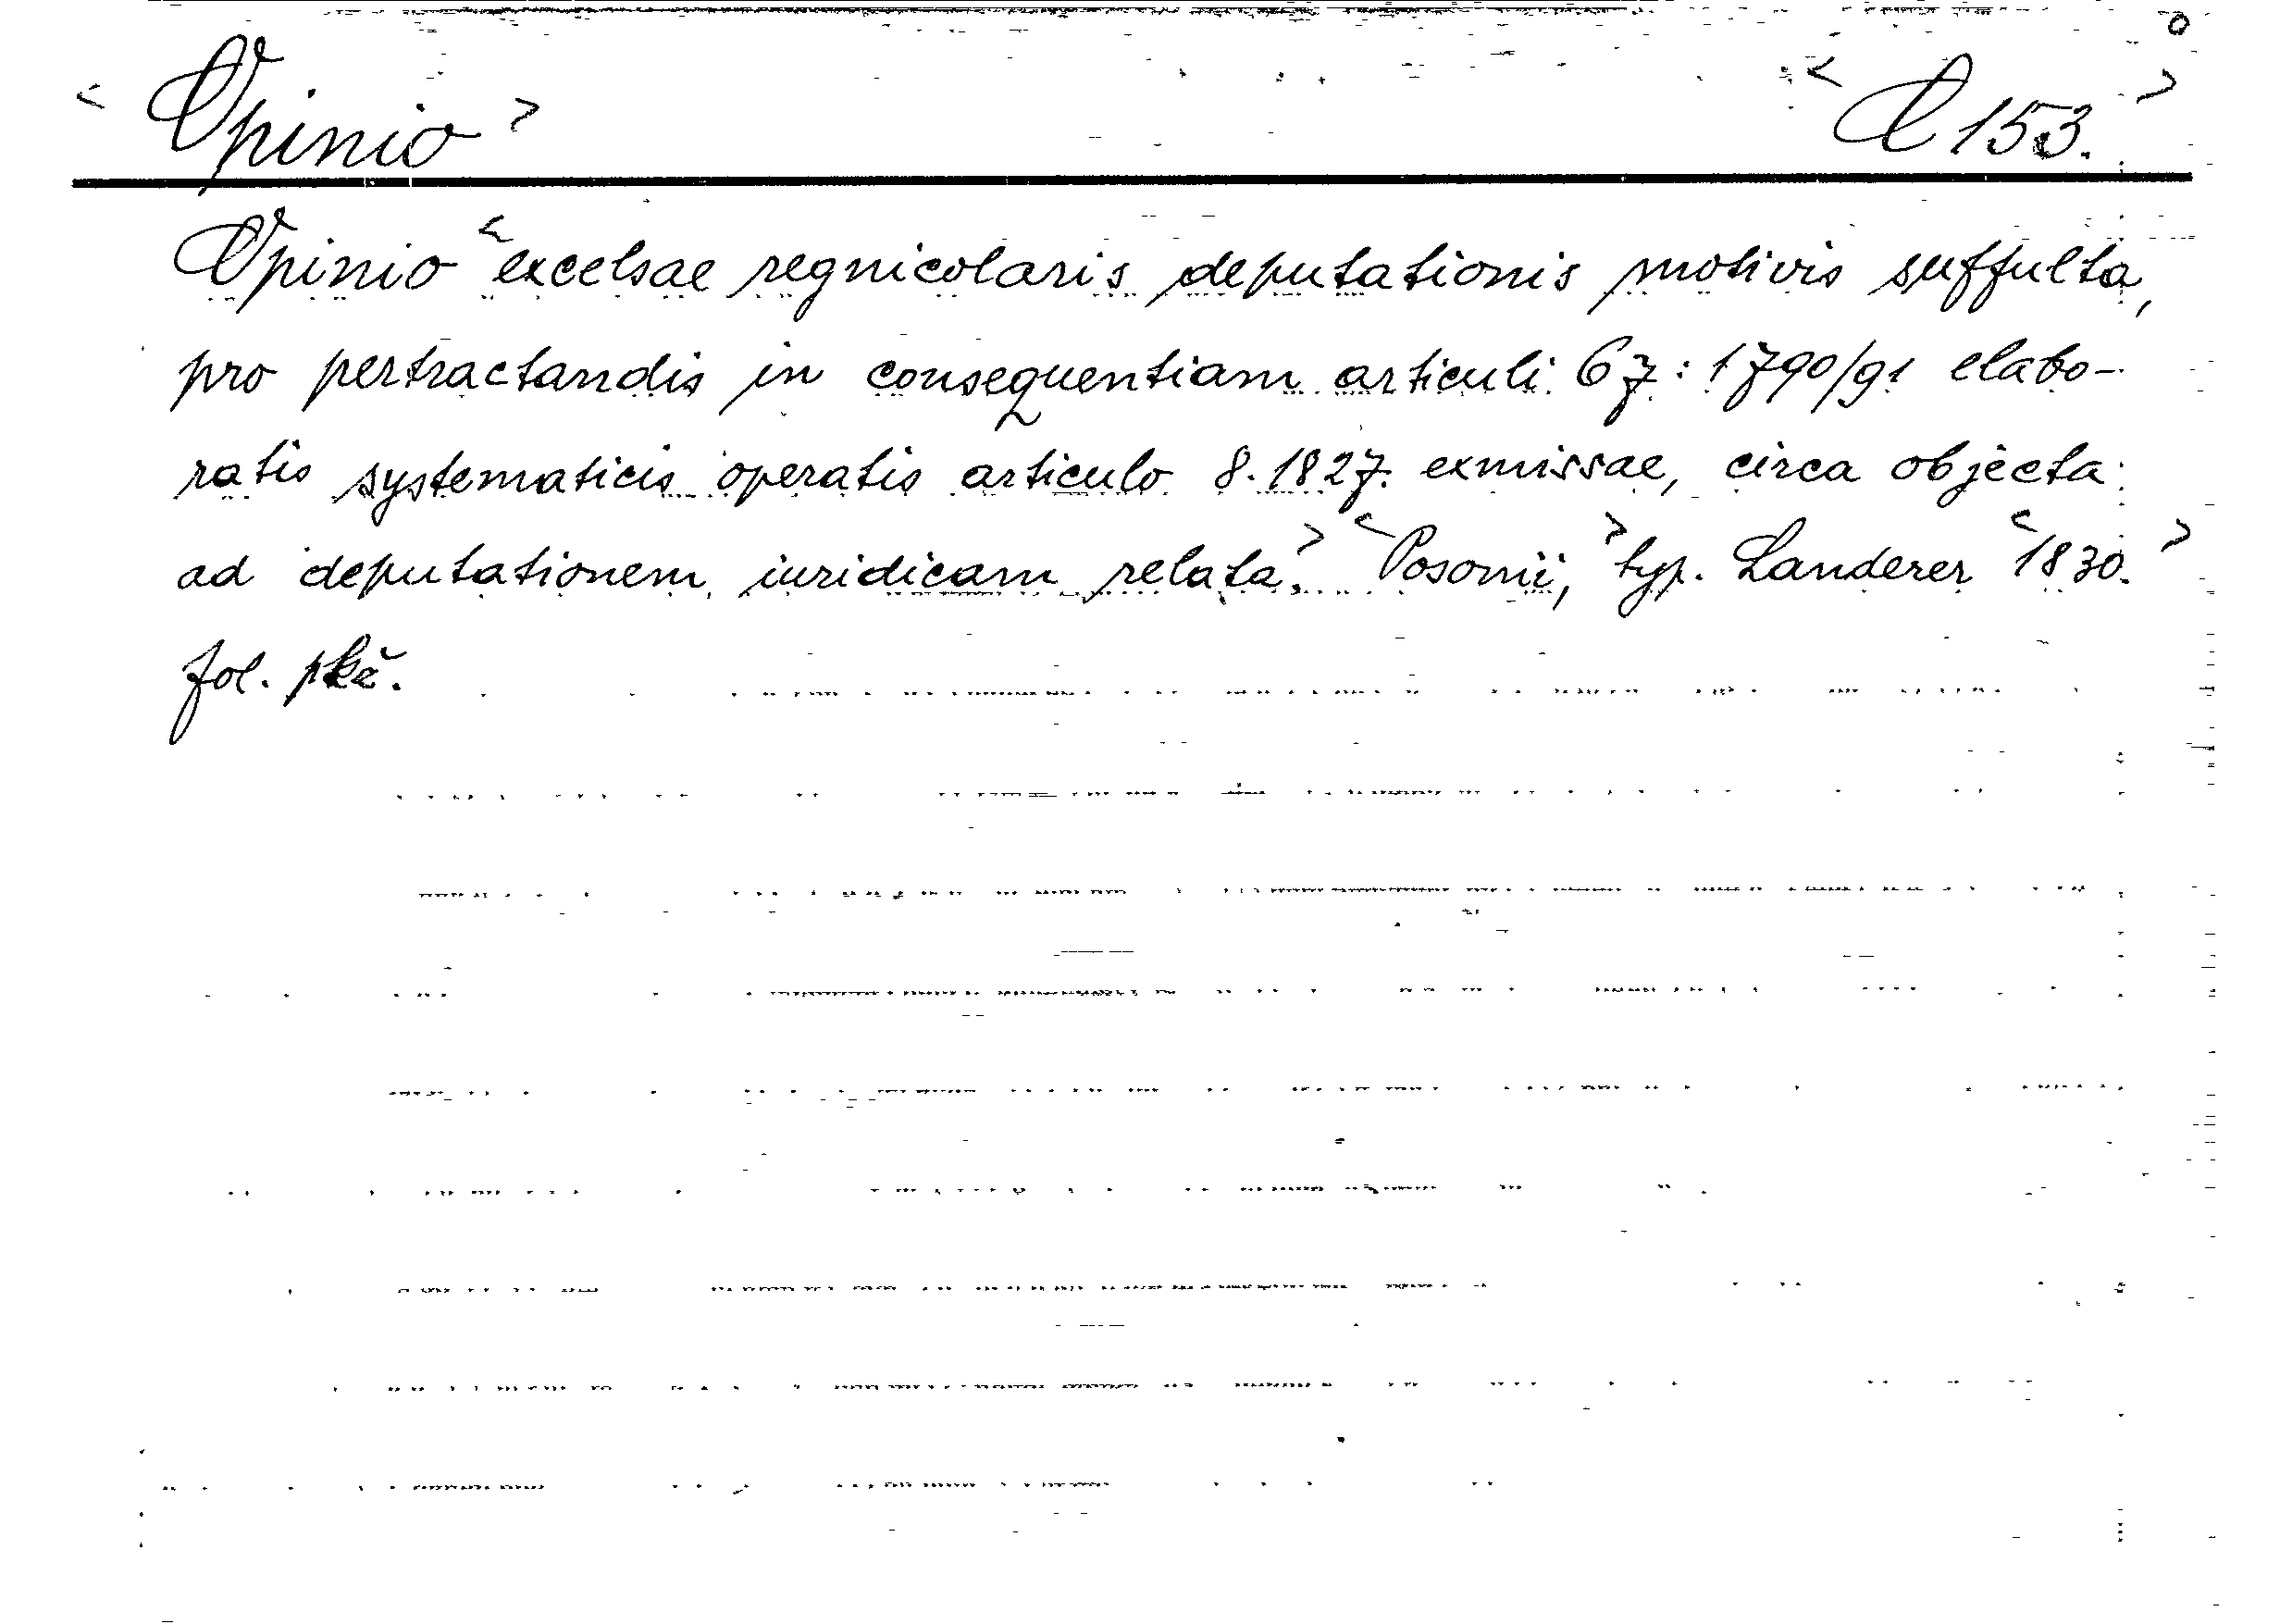 < Opinio > < O 153. >
Opinio < excelsae regnicolaris deputationis motivis suffulta,
pro pertractandis in consequentiam articuli 67: 1790/91 elabo-
ratis systematicis operatis articulo 8. 1827. exmissae, circa objecta
ad deputationem iuridicam relata. > < Posonii, > typ. Landerer < 1830. >
fol. pkč.